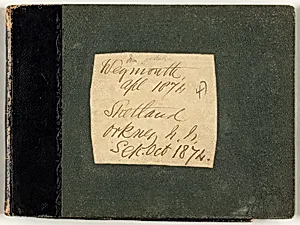 Weymouth
Apl 1874
Scotland
Orkney
Sep. Oct 1874.